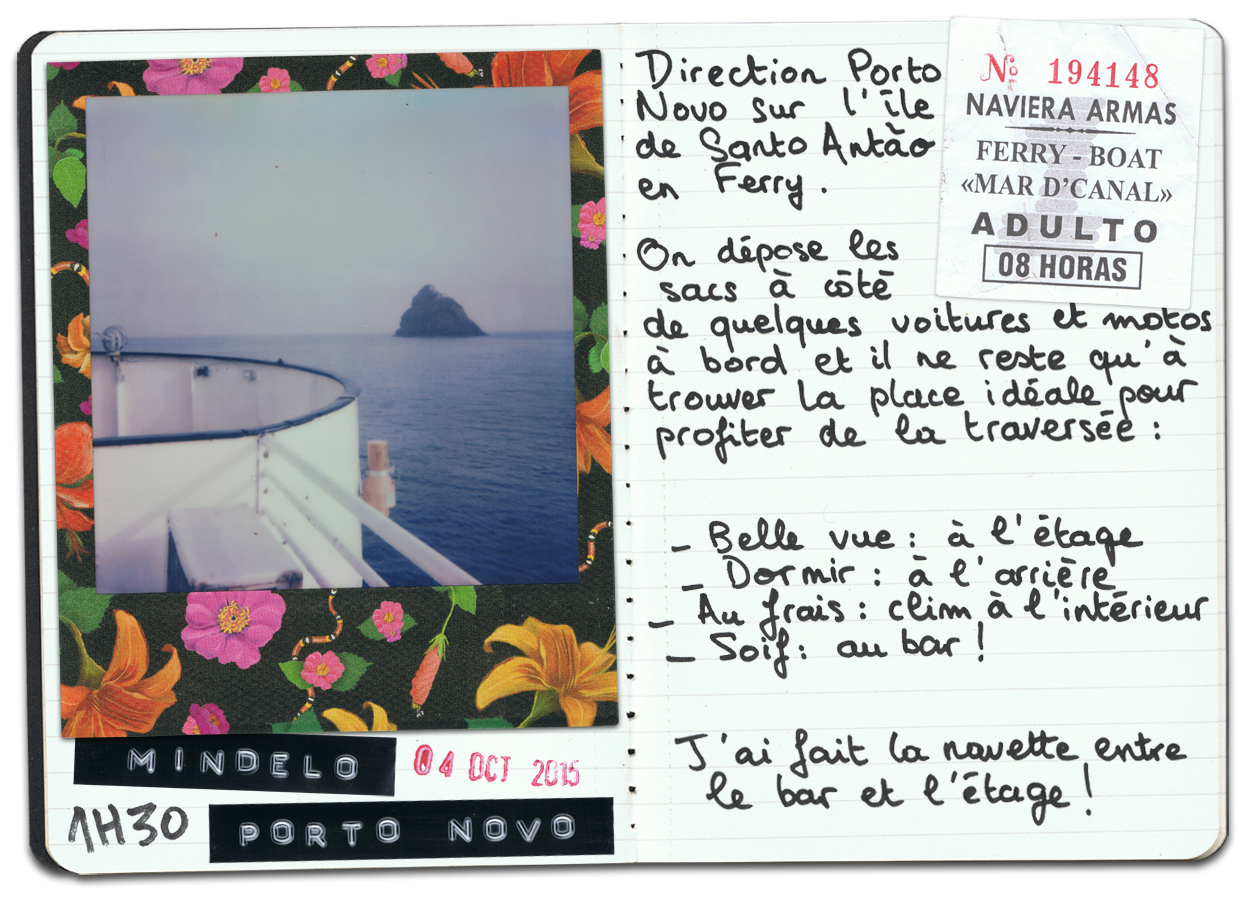 MINDELO
04 OCT 2015
1H30
PORTO NOVO
Direction Porto
Novo sur l'île
de Santo Antão
en Ferry.
On dépose les
sacs à côté
de quelques voitures et motos
à bord et il ne reste qu'à
trouver la place idéale pour
profiter de la traversée :
_ Belle vue : à l'étage
_ Dormir : à l'arrière
_ Au frais : clim à l'intérieur
_ Soif : au bar !
J'ai fait la navette entre
le bar et l'étage !
Nº 194148
NAVIERA ARMAS
FERRY - BOAT
«MAR D'CANAL»
ADULTO
08 HORAS